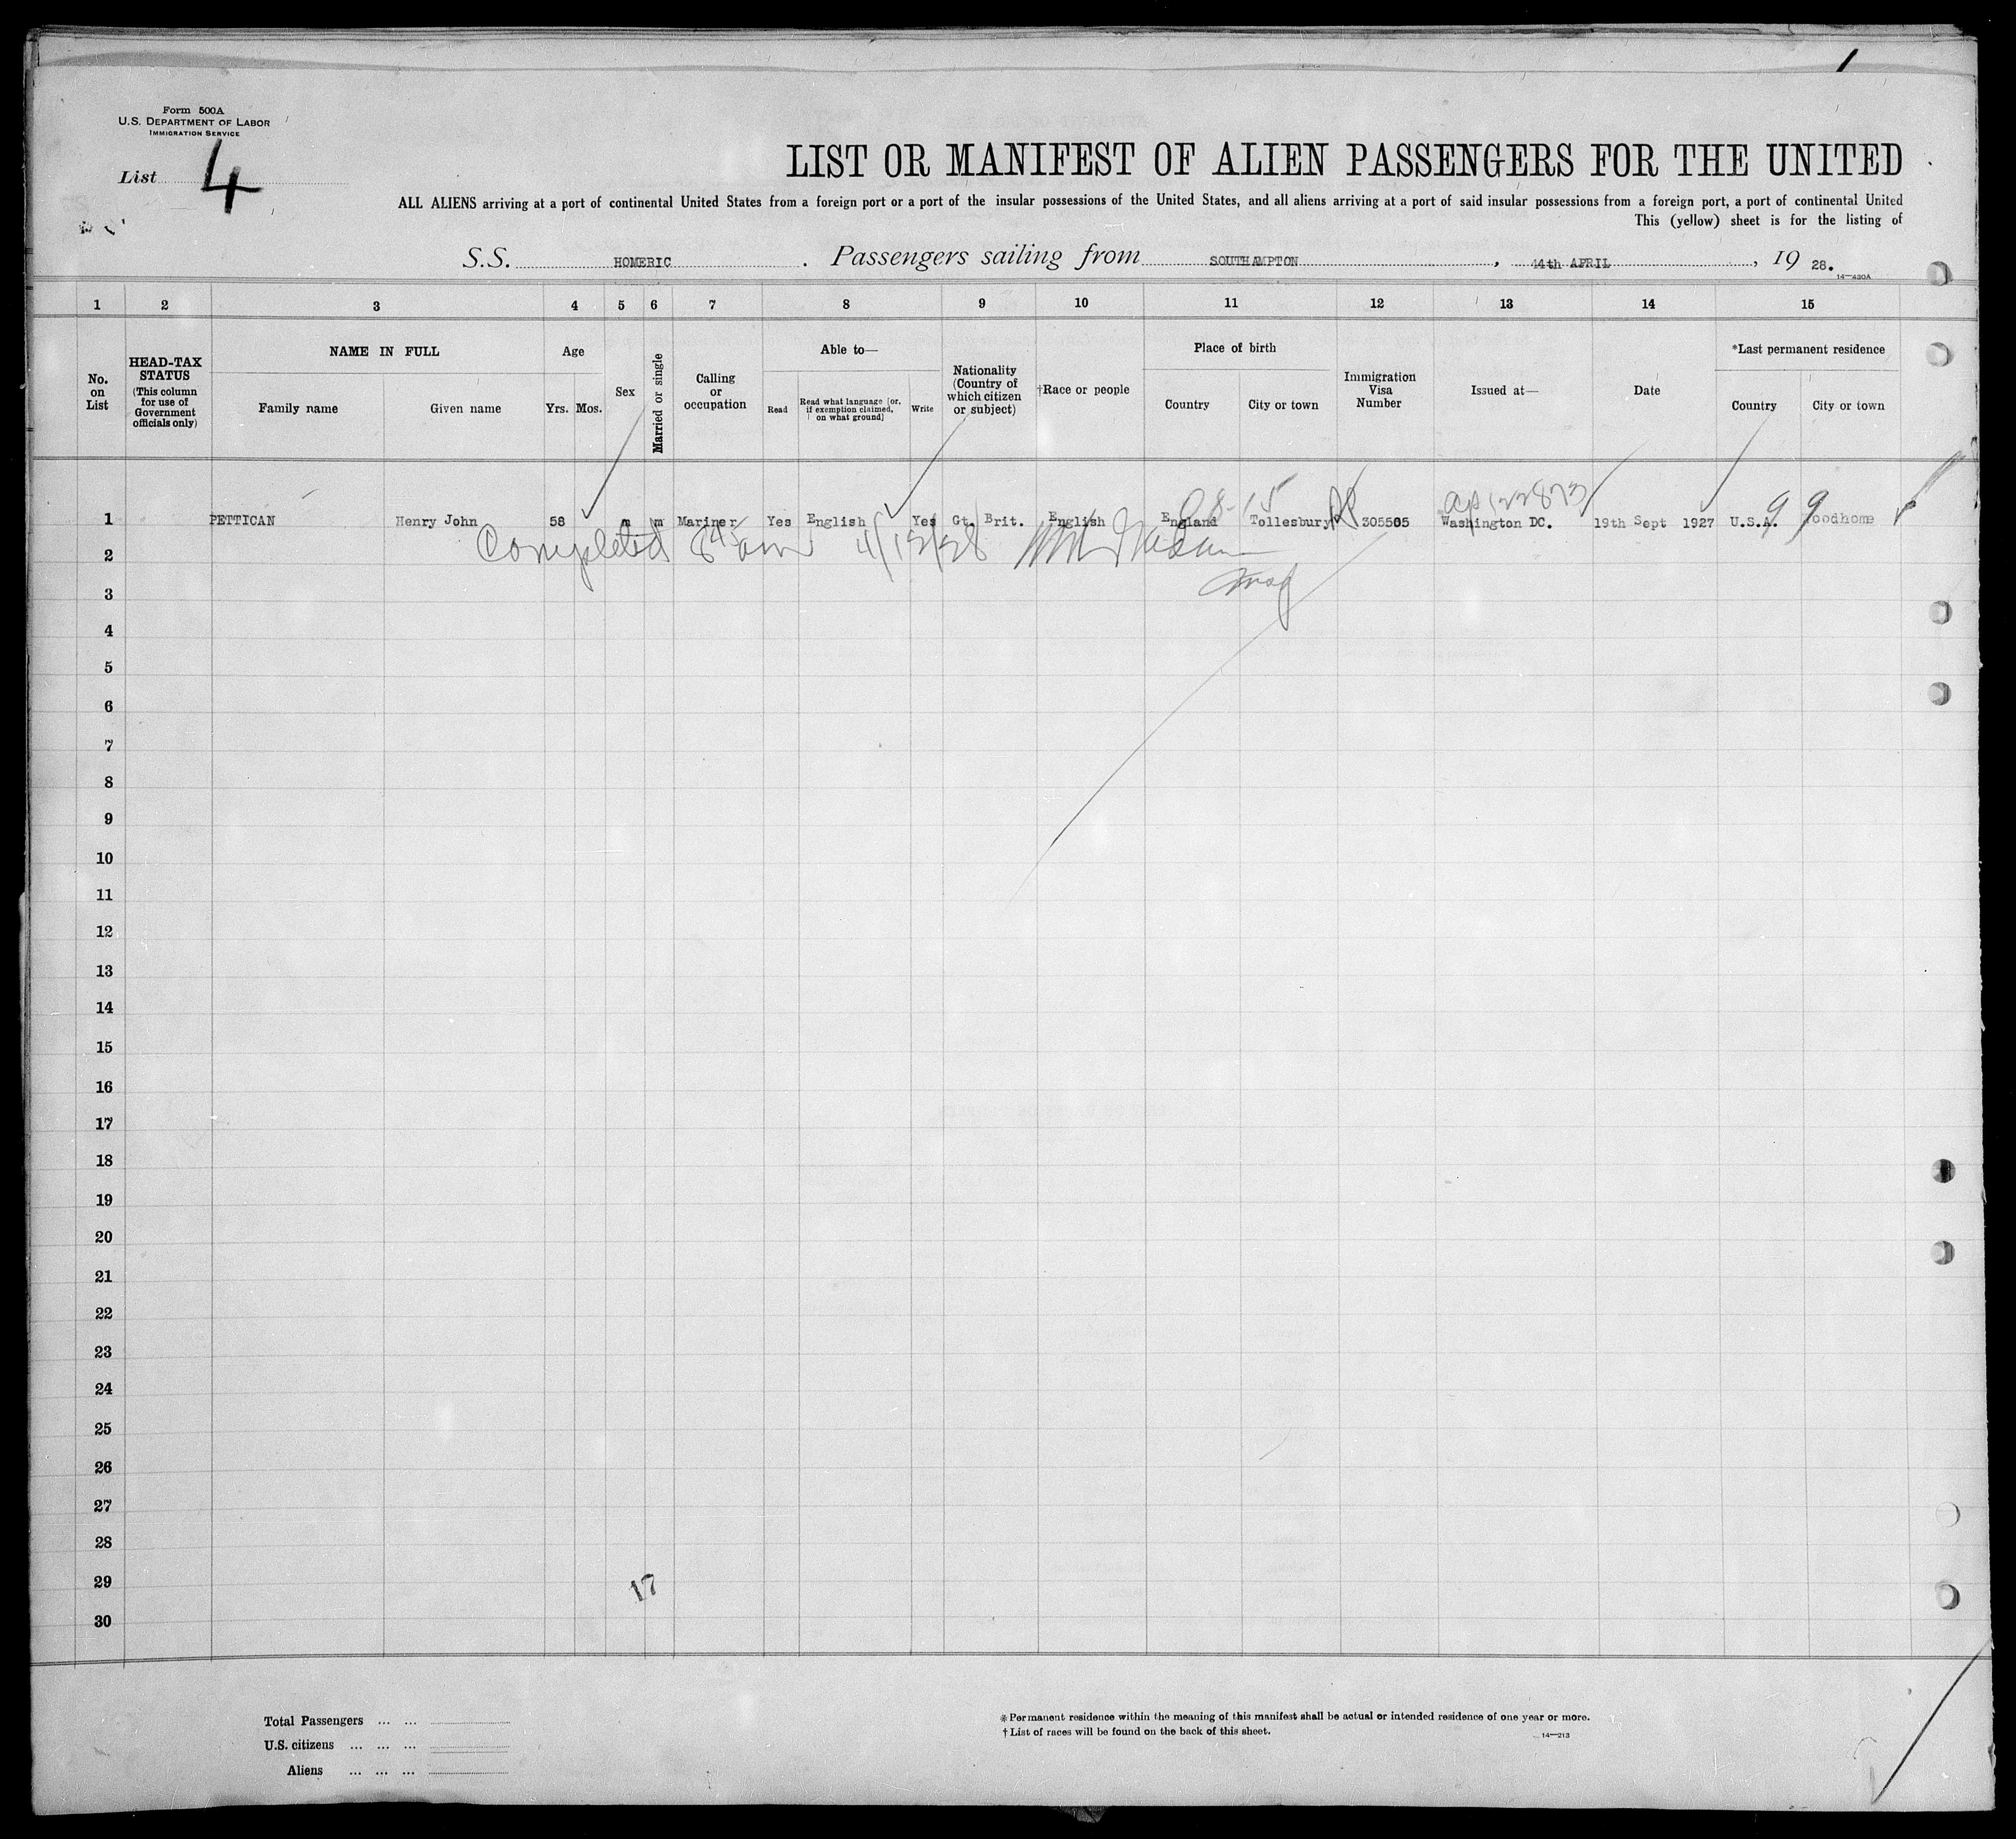 1
Form 500A
U.S. DEPARTMENT OF LABOR
IMMIGRATION SERVICE
List 4
LIST OR MANIFEST OF ALIEN PASSENGERS FOR THE UNITED
ALL ALIENS arriving at a port of continental United States from a foreign port or a port of the insular possessions of the United States, and all aliens arriving at a port of said insular possessions from a foreign port, a port of continental United
This (yellow) sheet is for the listing of
S.S. HOMERIC. Passengers sailing from SOUTHAMPTON, 14th APRIL, 19 28.
14—430A
1 2 3 4 5 6 7 8 9 10 11 12 13 14 15
No. on List
HEAD-TAX STATUS (This column for use of Government officials only)
NAME IN FULL
Family name Given name
Age
Yrs. Mos.
Sex
Married or single
Calling or occupation
Able to—
Read Read what language [or, if exemption claimed, on what ground] Write
Nationality (Country of which citizen or subject)
†Race or people
Place of birth
Country City or town
Immigration Visa Number
Issued at—
Date
*Last permanent residence
Country City or town
1 PETTICAN Henry John 58 m m Mariner Yes English Yes Gt. Brit. English England Tollesbury 305505 Washington DC. 19th Sept 1927 U.S.A. oodhome
2 Completed
3
4
5
6
7
8
9
10
11
12
13
14
15
16
17
18
19
20
21
22
23
24
25
26
27
28
29 17
30
Total Passengers ... ...
U.S. citizens ... ... ...
Aliens ... ... ...
* Permanent residence within the meaning of this manifest shall be actual or intended residence of one year or more.
† List of races will be found on the back of this sheet.
14—213